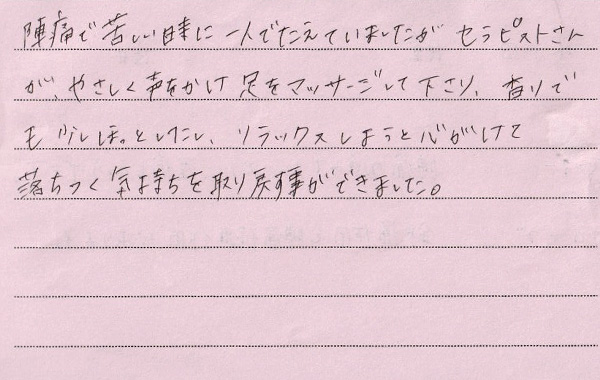 陣痛で苦しい時に一人でたえていましたがセラピストさん
が、やさしく声をかけ足をマッサージして下さり、香りで
も少しほっとしたし、リラックスしようと心がけて
落ちつく気持ちを取り戻す事ができました。